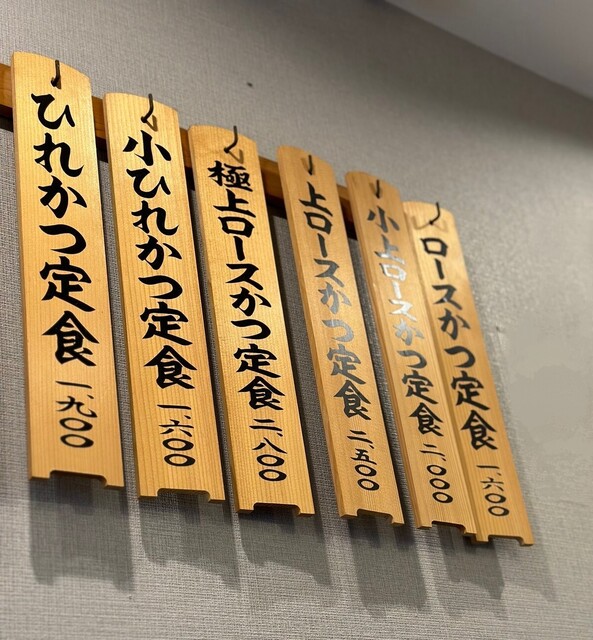 ロースかつ定食 一、六〇〇
小上ロースかつ定食 二、〇〇〇
上ロースかつ定食 二、五〇〇
極上ロースかつ定食 二、八〇〇
小ひれかつ定食 一、六〇〇
ひれかつ定食 一、九〇〇